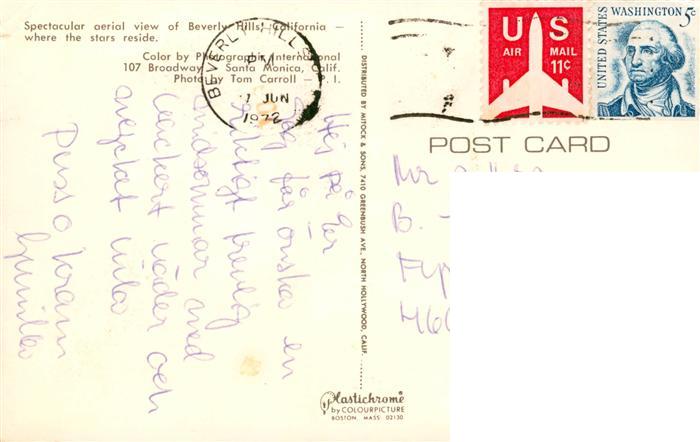 Spectacular aerial view of Beverly Hills, California –
where the stars reside.
Color by Photographic International
107 Broadway – Santa Monica, Calif.
Photo by Tom Carroll – P. I.
BEVERLY HILLS
PM
7 JUN
1972
US
AIR MAIL
11¢
UNITED STATES
WASHINGTON 5¢
POST CARD
DISTRIBUTED BY MITOCK & SONS, 7410 GREENBUSH AVE., NORTH HOLLYWOOD, CALIF.
Hej på Er
Jag får önska en
riktigt trevlig
midsommar med
vackert väder och
mycket
Puss o kram
Gunilla
Mr
B.
Plastichrome
by COLOURPICTURE
BOSTON, MASS 02130